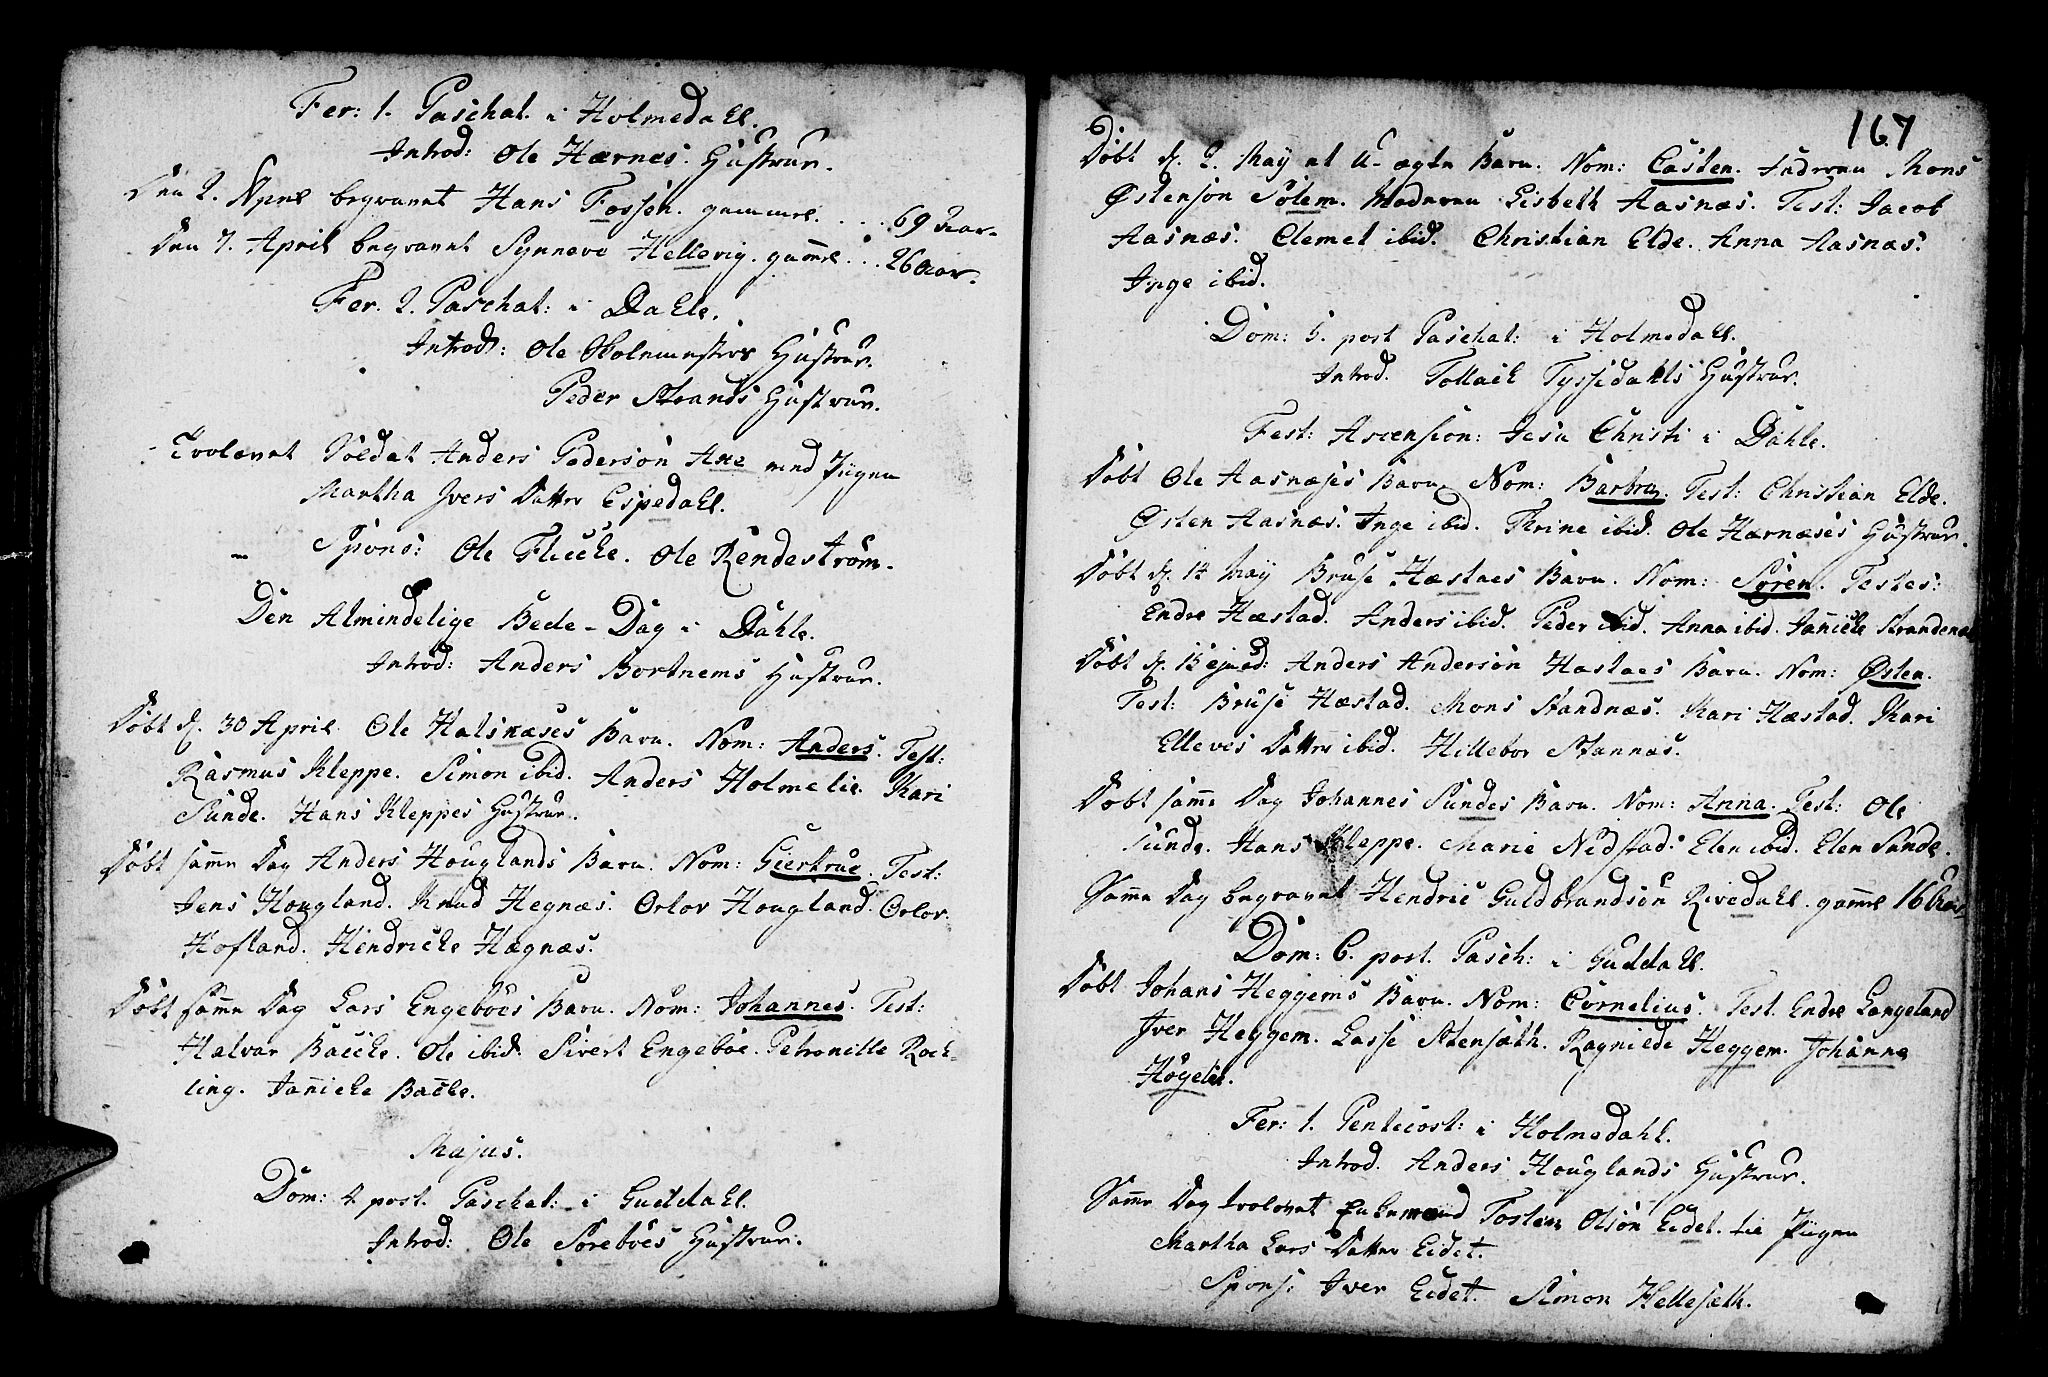 Fer: 1. Paschat. i Holmedahl.
Introd: Ole Hærnes. Hustrue.
Den 2. April begravet Hans Fossen. gammel. . . . 69 Aar.
Den 7. April begravet Synneve Hellevig. gam̃el . . . 26 Aar.
Fer. 2. Paschat: i Dahle.
Introd: Ole Skolemesters Hustrue.
Peder Strands Hustrue.
Trolovet Soldat Anders Pedersøn Aae med Piigen
Martha Ivers Datter Espedahl.
Spons: Ole Flecke. Ole Rendestrøm.
Den Almindelige Bede-Dag i Dahle.
Introd: Anders Bortnems Hustrue.
Døbt d. 30 April. Ole Halsnæses Barn. Nom: Anders. Test:
Rasmus Kleppe. Simon ibid. Anders Holmelie. Kari
Sunde. Hans Kleppes Hustrue.
Døbt sam̃e Dag Anders Houglands Barn. Nom: Giertrue. Test:
Jens Hougland. Knud Hegnæs. Orlov Hougland. Orlov
Hofland. Hendriche Hægnæs.
Døbt sam̃e Dag Lars Engeboes Barn. Nom: Johannes. Test:
Halvar Bacche. Ole ibid. Sivert Engeboe. Petronille Roch-
ling. Jañiche Bache.
Majus.
Dom: 4 post. Paschat: i Guddahl.
Introd: Ole Søreboes Hustrue.
167
Døbt d. 2. May et U-ægte Barn. Nom: Casten. Faderen Mons
Østensøn Solem. Moderen Lisbeth Aasnæs. Test: Jacob
Aasnæs. Clemet ibid. Christian Elde. Anna Aasnæs.
Inge ibid.
Dom: 5. post Paschat: i Holmedahl.
Introd. Tollach Tyssedahls Hustrue.
Fest: Ascension: Jesu Christi i Dahle.
Døbt Ole Aasnæses Barn. Nom: Barbra. Test: Christian Elde.
Østen Aasnæs. Inge ibid. Thrine ibid. Ole Hærnæses Hustrue.
Døbt d. 14 May Bruse Hæstaes Barn. Nom: Søren. Testes:
Endre Hæstad. Anders ibid. Peder ibid. Anna ibid. Jañiche Strandenæs
Døbt d. 15 ejusd: Anders Andersøn Hastaes Barn. Nom: Østen.
Test: Bruse Hæstad. Mons Standnæs. Kari Hæstad. Kari
Elleves Datter ibid. Hillebor Stannæs.
Døbt sam̃e Dag Johannes Sundes Barn. Nom: Anna. Test: Ole
Sunde. Hans Kleppe. Marie Nidstad. Elen ibid. Elen Sande.
Sam̃e Dag begravet Hendric Guldbrandsøn Rivedahl. gam̃el 16 Aar
Dom: 6. post. Pasch: i Guddahl.
Døbt Johans Heggems Barn. Nom: Cornelius. Test. Endre Langeland
Iver Heggem. Lasse Stensæth. Ragnilde Heggem. Johanne
Høgelie.
Fer: 1. Pentecost: i Holmedahl.
Introd. Anders Houglands Hustrue.
Sam̃e Dag trolovet Enkemand Tosten Olsøn Eidet. til Piigen
Martha Lars Datter Eidet.
Spons. Iver Eidet. Simon Hellesæth.